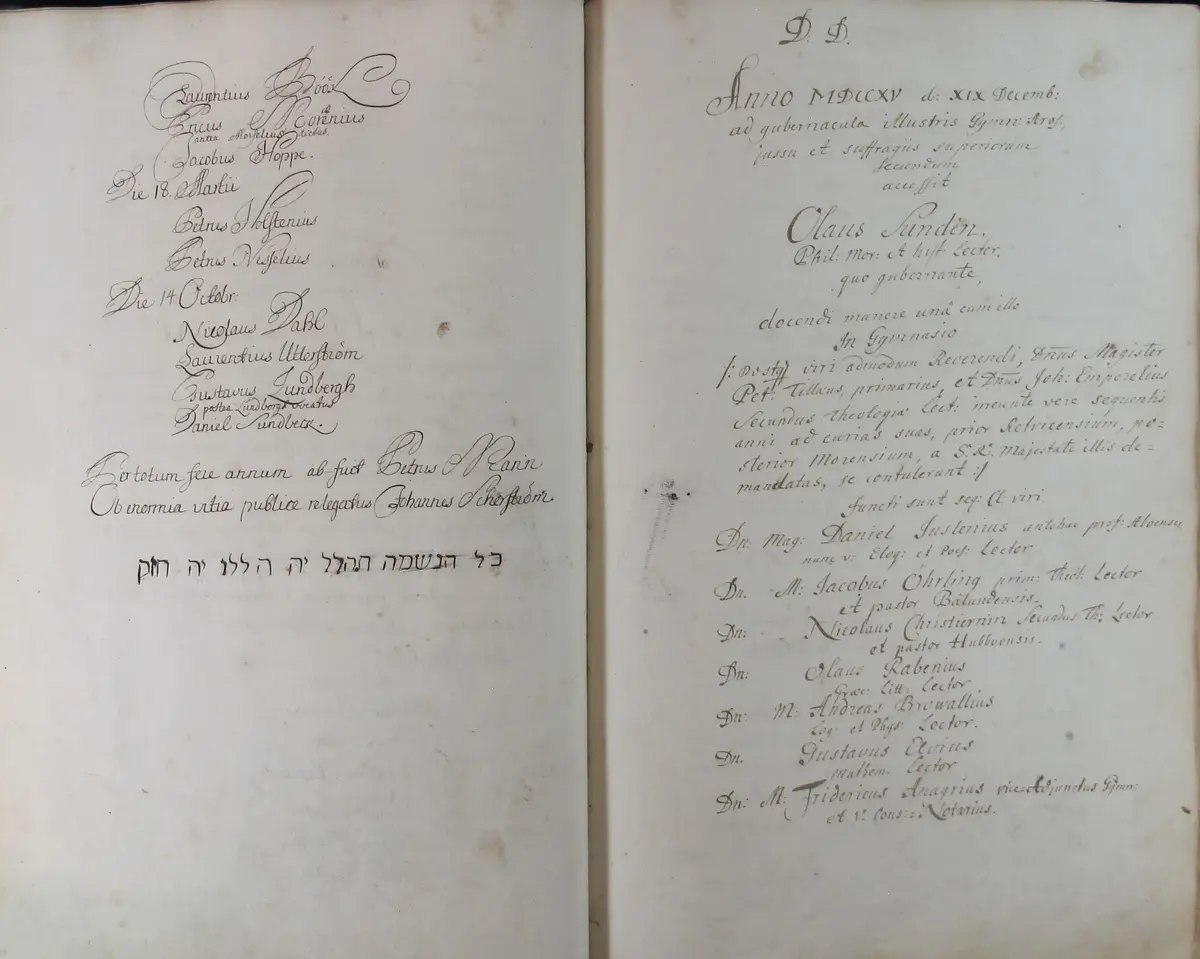 Laurentius Böök
Ericus Norenius
antea Morselius dictus.
Jacobus Hoppe.
Die 18. Martii
Petrus Holstenius
Petrus Nisselius
Die 14 Octobr.
Nicolaus Dahl
Laurentius Utterström
Gustavus Lundbergh
postea Lundborgh vocatus
Daniel Sundbeck.
Per totum fere annum ab fuit Petrus Marin
Ob enormia vitia publice relegatus Johannes Scherström
כל הנשמה תהלל יה הללו יה
D. D.
Anno MDCCXV d: XIX Decemb:
ad gubernacula illustris Gymn: Aros,
jussu et suffragiis superiorum
secundum
accessit
Olaus Sundén.
Phil: Mor: et hist Lector,
quo gubernante,
docendi munere unà cum illo
In Gymnasio
/: Postq viri admodum Reverendi, Dnus Magister
Pet: Tillæus, primarius, et Dnus Joh: Emporelius
Secundus Theologiæ Lect: ineunte vere sequentis
anni ad curias suas, prior Retvicensium, po=
sterior Morensium, a S. R. Majestate illis de=
mandatas, se contulerunt :/
functi sunt seq: Cl viri
Dn: Mag: Daniel Juslenius antehac prof: Aboensis
nunc v: Eloq: et Poës: Lector
Dn. M: Jacobus Öhrling prim: Theol: Lector
et pastor Balundensis.
Dn: Nicolaus Christiernin Secundus Th: Lector
et pastor Hubboensis.
Dn: Olaus Rabenius
Græc: Litt: Lector
Dn: M: Andreas Browallius
Log: et Phys: Lector.
Dn. Gustavus Elvius
Mathem. Lector
Dn: M: Fridericus Anagrius vice-Adjunctus Gymn:
et v: Cons:= Notarius.